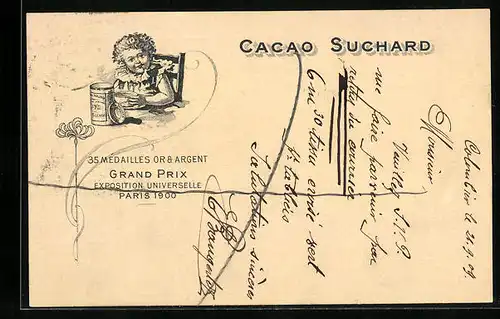 CACAO SUCHARD
35 MEDAILLES OR & ARGENT
GRAND PRIX
EXPOSITION UNIVERSELLE
PARIS 1900
Colombier le 21.9.09
Monsieur
Veuillez S.V.P.
me faire parvenir par
retour du courrier
6 m 30 tissu croisé vert
pr tabliers
Salutations sincères